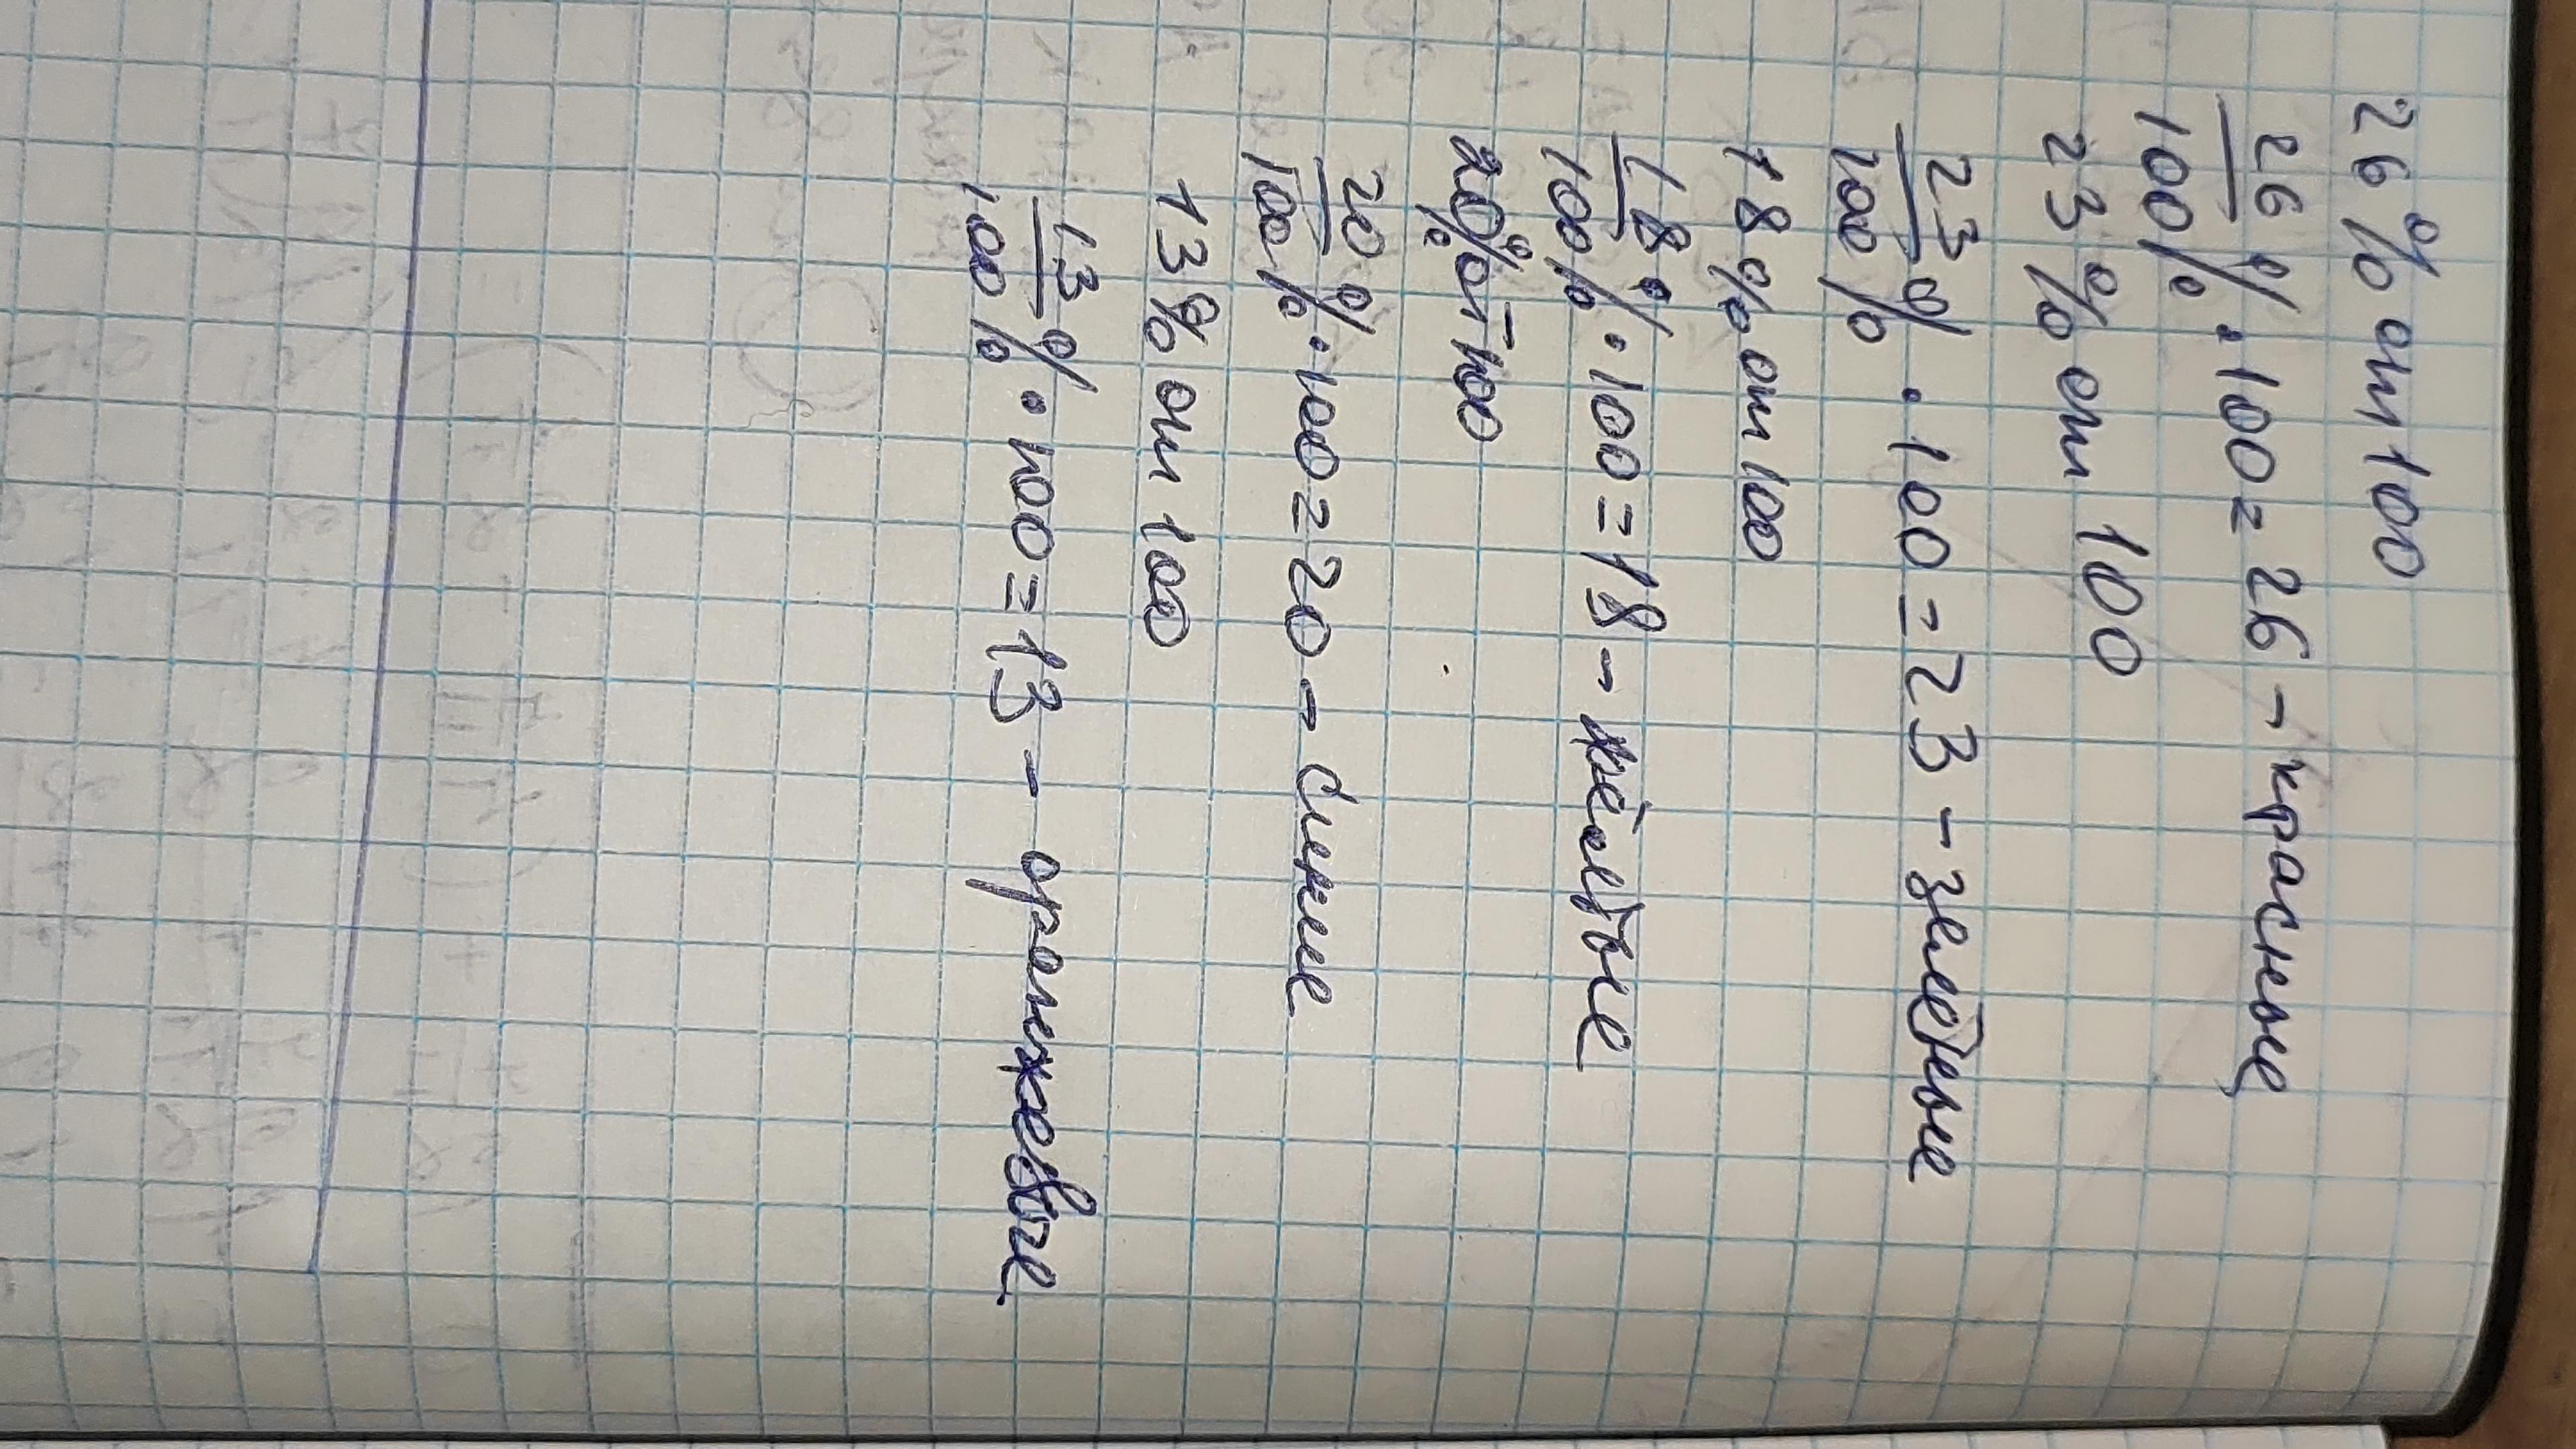 26% от 100
26%/100% · 100 = 26 - красные
23% от 100
23%/100% · 100 = 23 - зелёные
18% от 100
18%/100% · 100 = 18 - жёлтые
20% от 100
20%/100% · 100 = 20 - синие
13% от 100
13%/100% · 100 = 13 - оранжевые